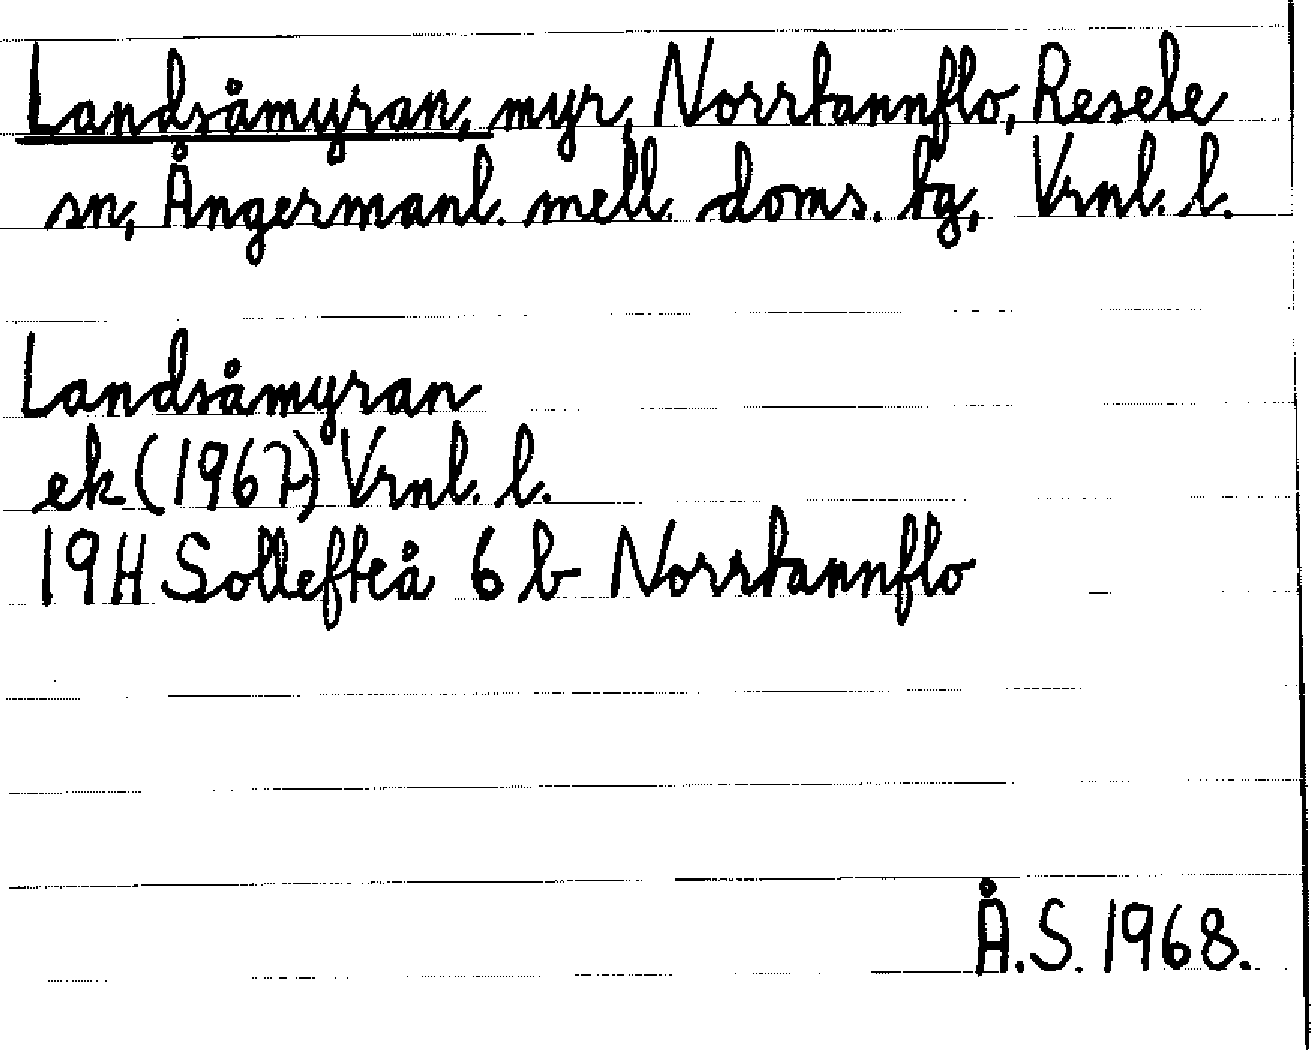 Landsåmyran, myr, Norrtannflo, Resele
sn, Ångermanl. mell. doms. tg, Vrnl. l.
Landsåmyran
ek (1967) Vrnl. l.
19H Sollefteå 6 b Norrtannflo
Å.S. 1968.